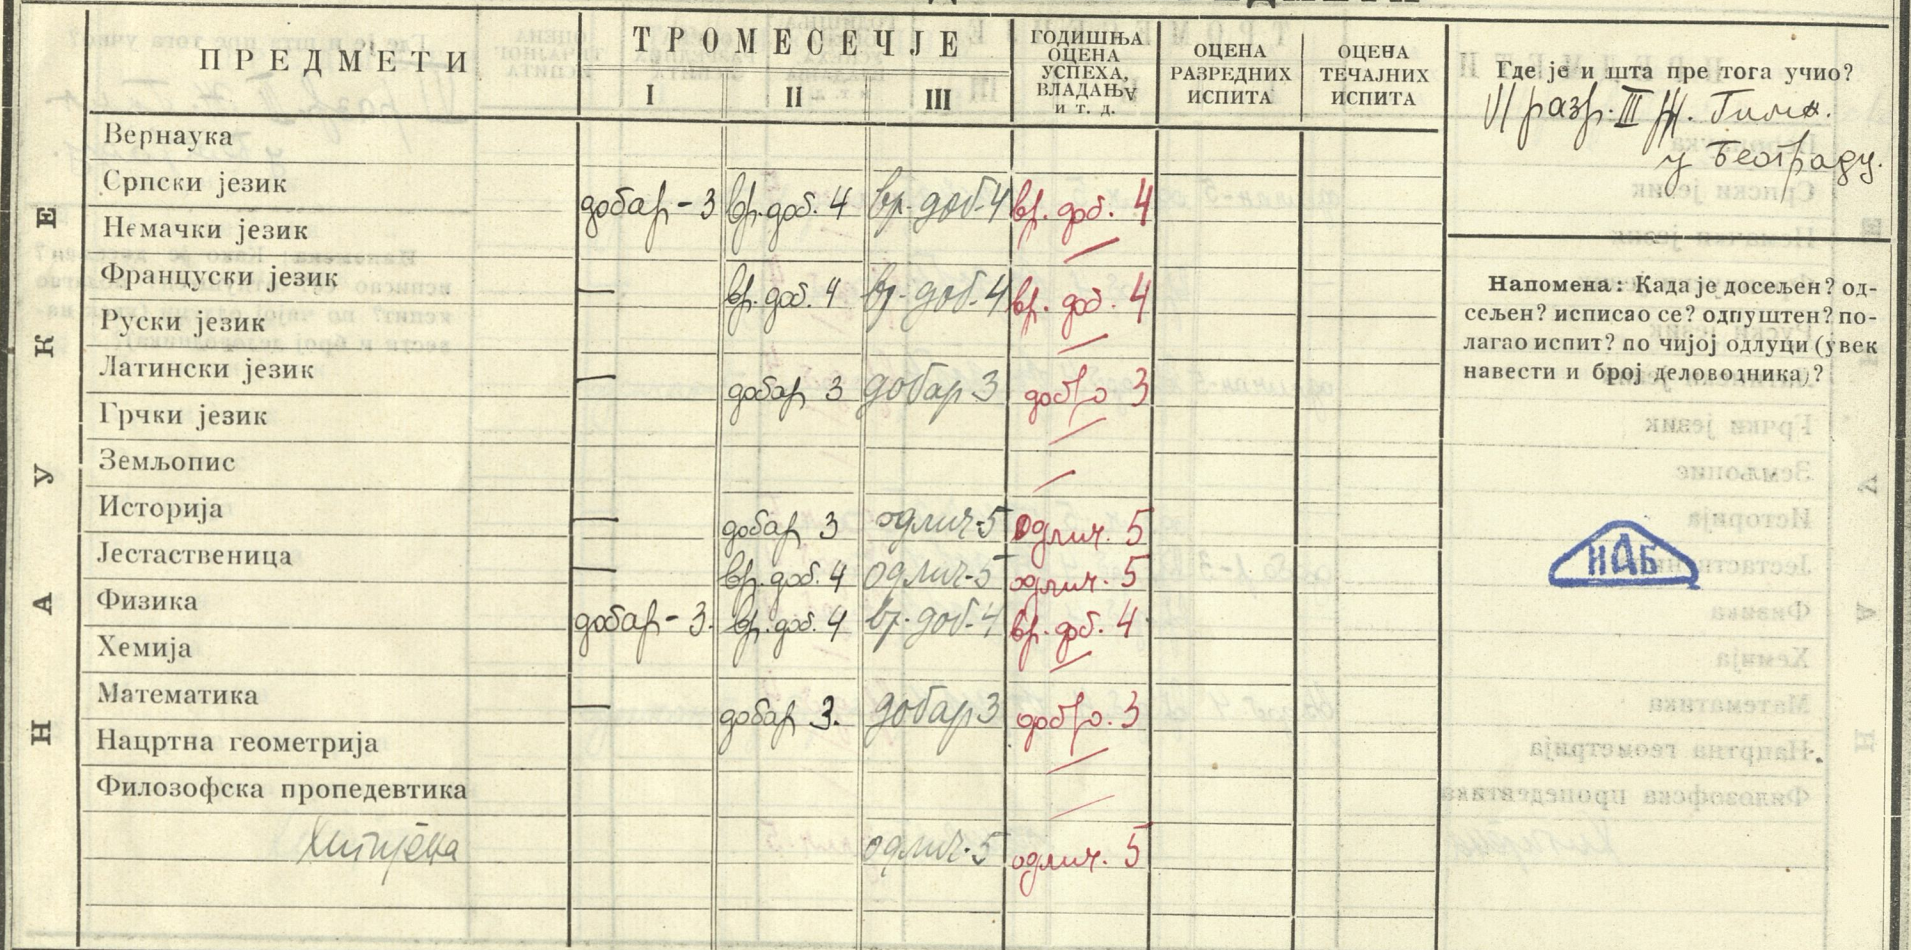 ПРЕДМЕТИ
ТРОМЕСЕЧЈЕ
I II III
ГОДИШЊА ОЦЕНА УСПЕХА, ВЛАДАЊА И Т. Д.
ОЦЕНА РАЗРЕДНИХ ИСПИТА
ОЦЕНА ТЕЧАЈНИХ ИСПИТА
НАУКЕ
Вернаука
Српски језик добар - 3 вр. доб. 4 вр. доб. 4 вр. доб. 4
Немачки језик
Француски језик — вр. доб. 4 вр. доб. 4 вр. доб. 4
Руски језик
Латински језик — добар 3 добар 3 добро 3
Грчки језик
Земљопис
Историја — добар 3 одлич. 5 одлич. 5
Јестаственица — вр. доб. 4 одлич. 5 одлич. 5
Физика добар - 3. вр. доб. 4 вр. доб. 4 вр. доб. 4
Хемија
Математика — добар 3. добар 3 добро. 3
Нацртна геометрија
Филозофска пропедевтика
Хигијена одлич. 5 одлич. 5
Где је и шта пре тога учио?
VI разр. III Ж. Гимн.
у Београду.
Напомена: Када је досељен? од-
сељен? исписао се? одпуштен? по-
лагао испит? по чијој одлуци (увек
навести и број деловодника)?
ИАБ